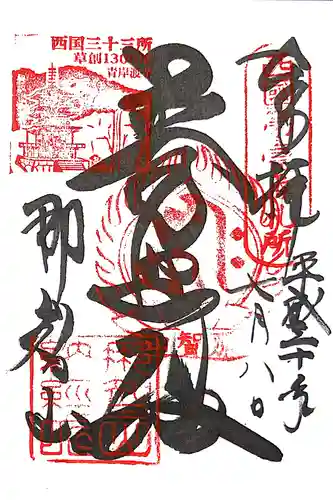 西国三十三所
草創1300年
青岸渡寺
奉拝
平成三十年
七月八日
普照殿
那智山